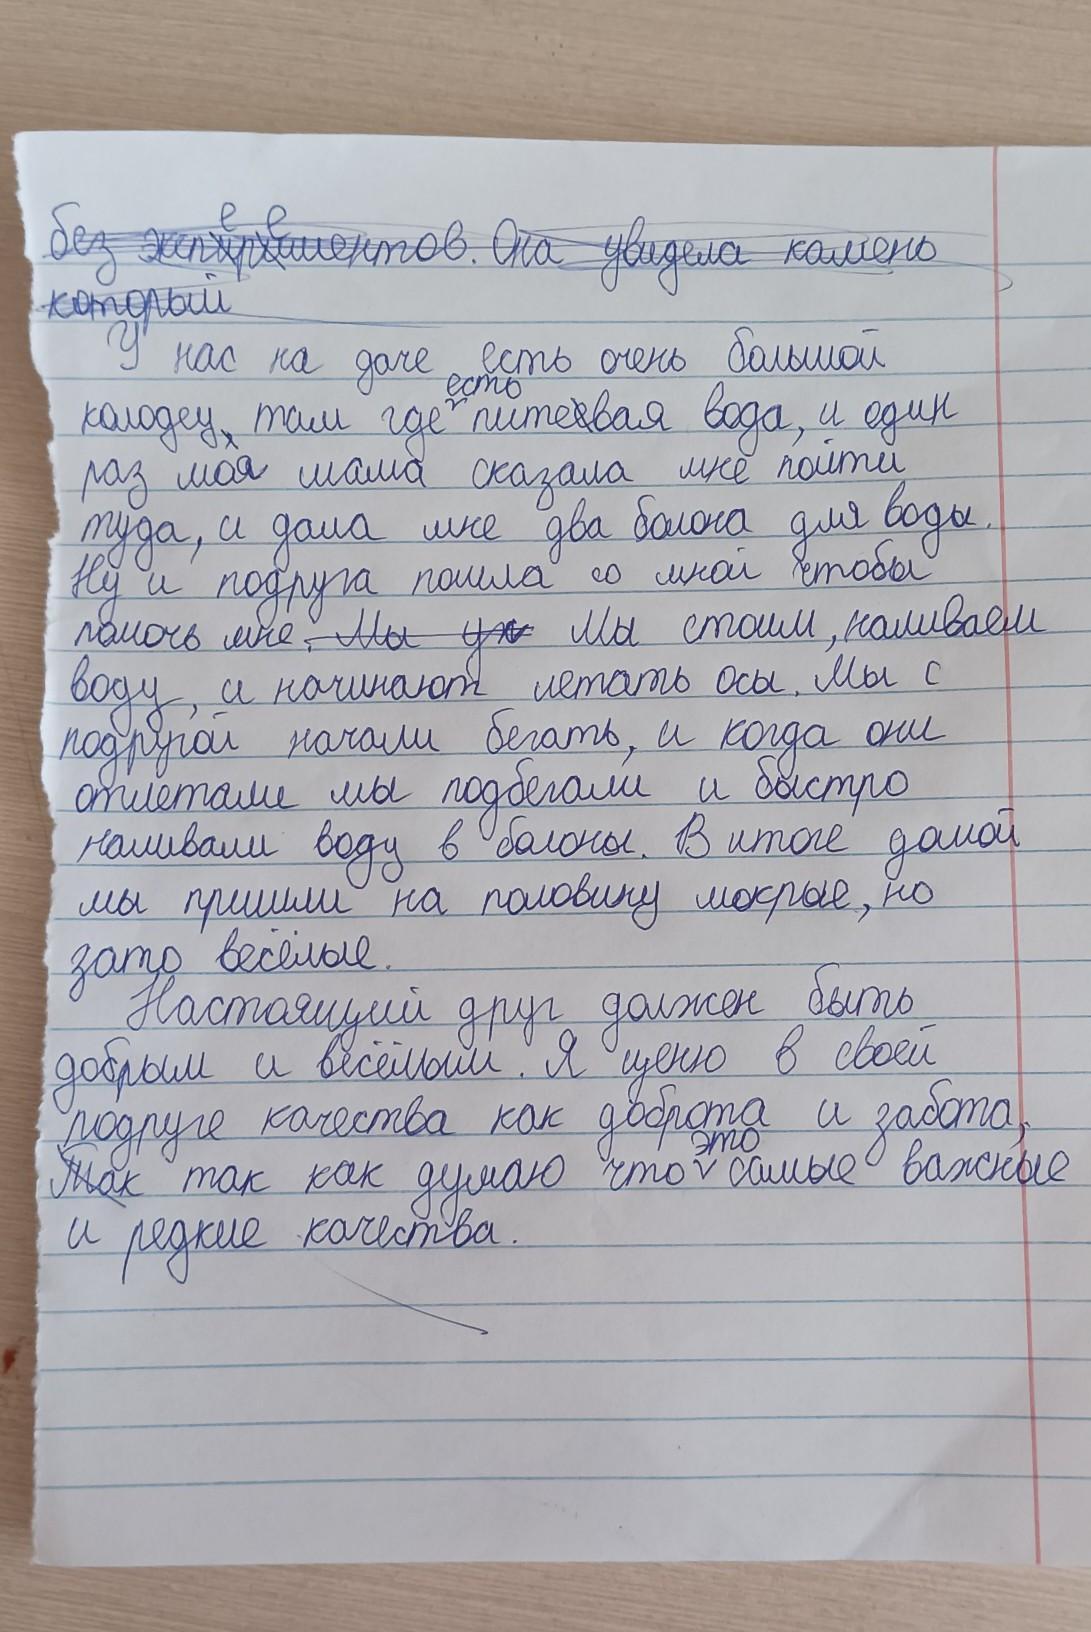 без экспериментов. Она увидела камень
который
У нас на даче есть очень большой
колодец, там где есть питевая вода, и один
раз моя мама сказала мне пойти
туда, и дала мне два болона для воды.
Ну и подруга пошла со мной чтобы
помочь мне. Мы уж Мы стоим, наливаем
воду, и начинают летать осы. Мы с
подругой начали бегать, и когда они
отлетали мы подбегали и быстро
наливали воду в болоны. В итоге домой
мы пришли на половину мокрые, но
зато весёлые.
Настоящий друг должен быть
добрым и весёлым. Я ценю в своей
подруге качества как доброта и забота,
Так так как думаю что это самые важные
и редкие качества.